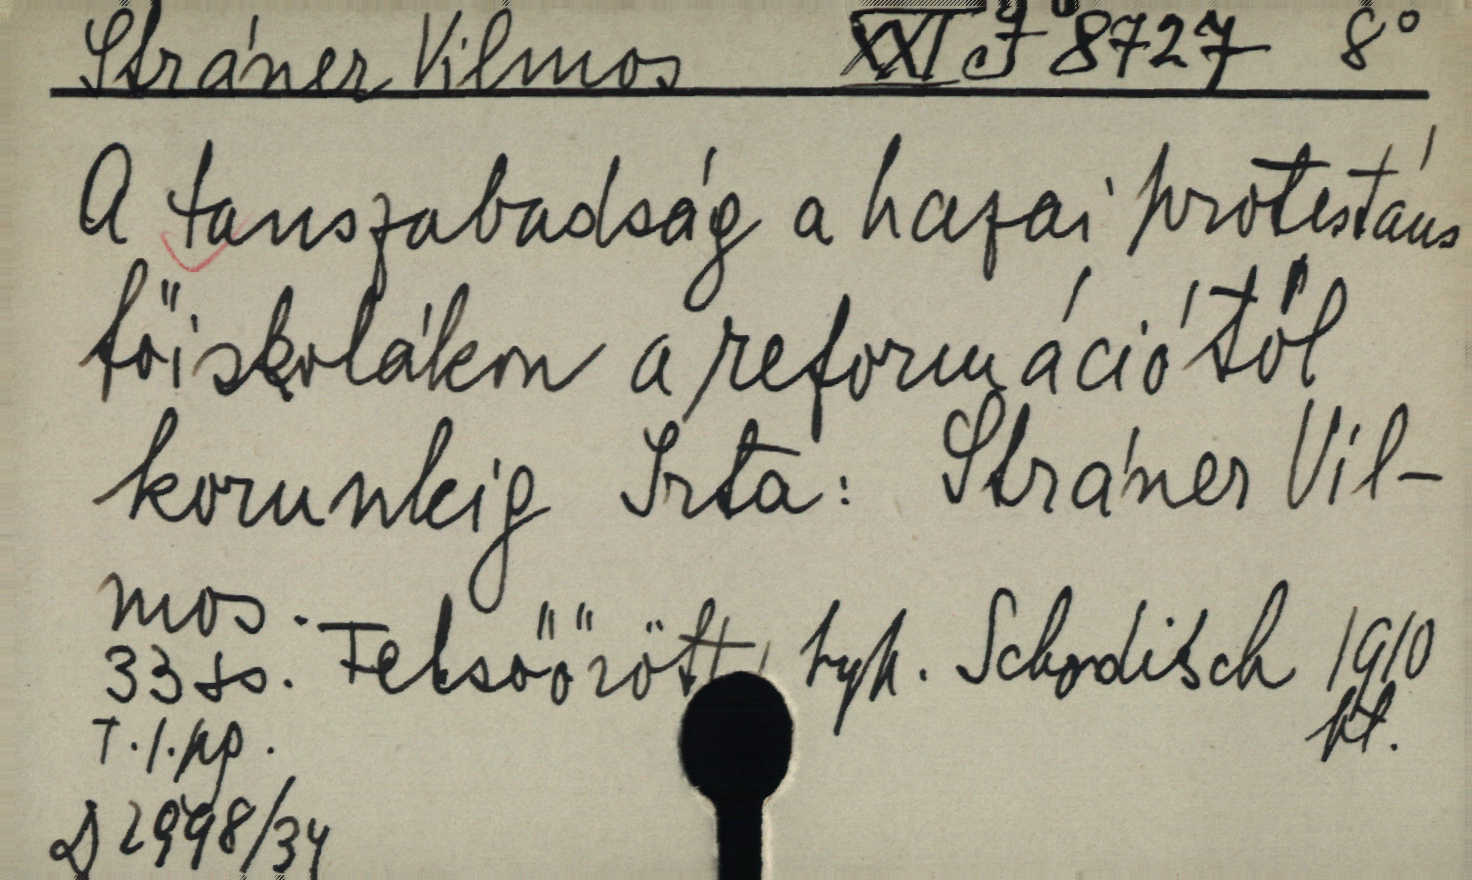 Stráner Vilmos XXI 8727 8°
A tanszabadság a hazai protestáns
főiskolákon a reformációtól
korunkig Irta: Stráner Vil-
mos.
33 ss. Felsőőrött, typ. Schodisch 1910
T.1.pg. kt.
D 2998/34